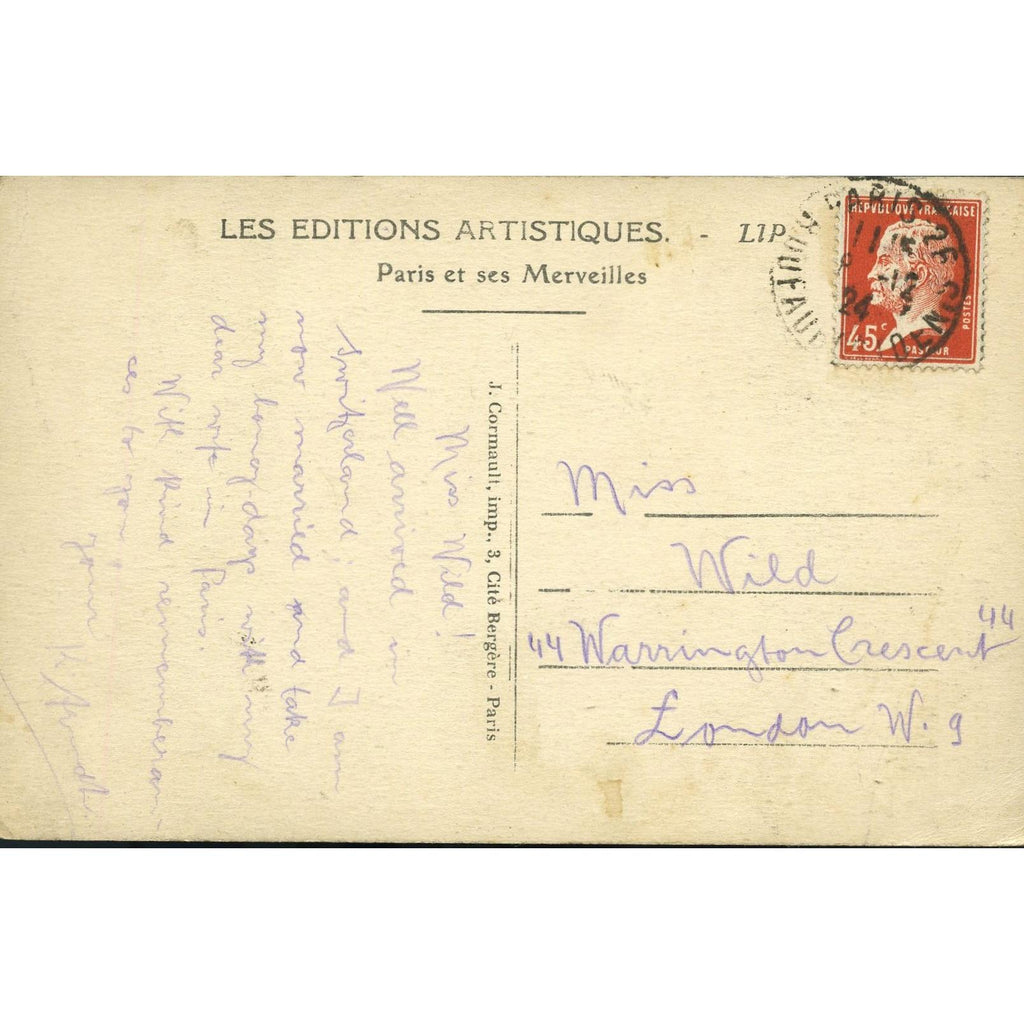 LES EDITIONS ARTISTIQUES. - LIP
Paris et ses Merveilles
Miss Wild!
Well arrived in
Switzerland, and I am
now married and take
my honey-days with my
dear wife in Paris.
With kind remembran-
ces to you
yours
J. Cormault, imp., 3, Cité Bergère - Paris
Miss
Wild
"44 Warrington Crescent" 44
London W. 9
REPVBLIQVE FRANÇAISE
45c
PASTEUR
POSTES
PARIS 25
24
DENIS